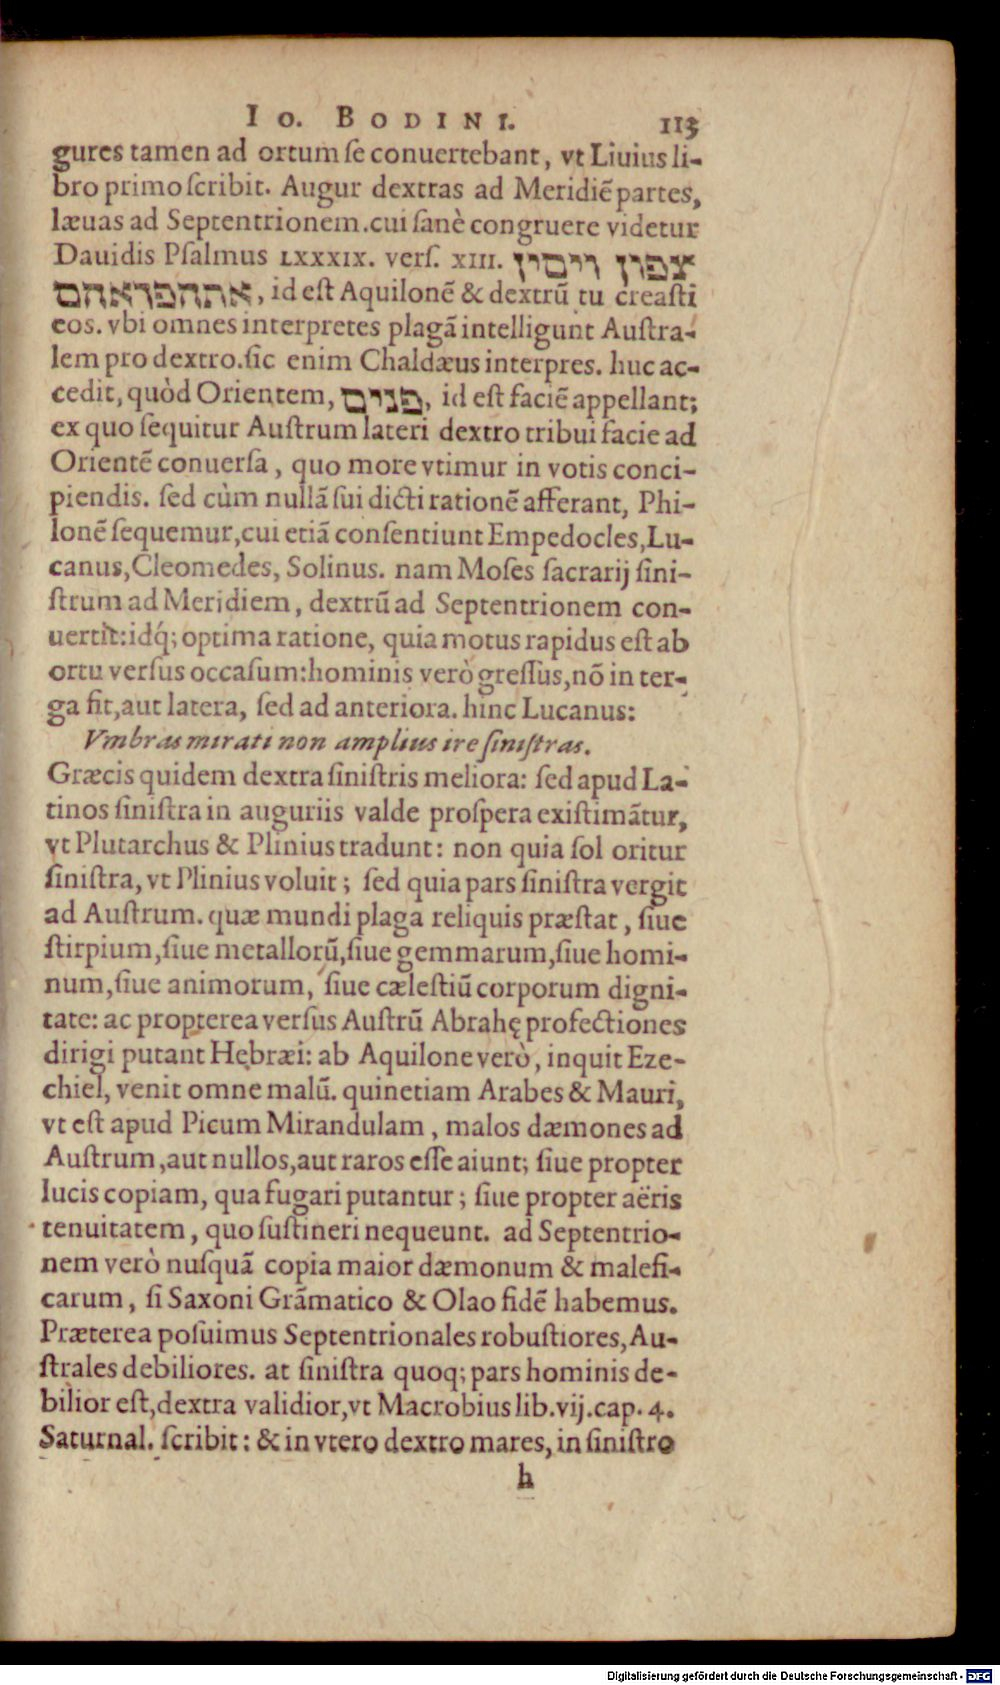 IO. BODINI. 113
gures tamen ad ortum ſe conuertebant, vt Liuius li-
bro primo ſcribit. Augur dextras ad Meridiẽ partes,
læuas ad Septentrionem. cui ſanè congruere videtur
Dauidis Pſalmus LXXXIX. verſ. XIII. צפון וימין
אתהפראהם, id eſt Aquilonẽ & dextrũ tu creaſti
eos. vbi omnes interpretes plagã intelligunt Auſtra-
lem pro dextro. ſic enim Chaldæus interpres. huc ac-
cedit, quòd Orientem, פנים, id eſt faciẽ appellant;
ex quo ſequitur Auſtrum lateri dextro tribui facie ad
Orientẽ conuerſa, quo more vtimur in votis conci-
piendis. ſed cùm nullã ſui dicti rationẽ afferant, Phi-
lonẽ ſequemur, cui etiã conſentiunt Empedocles, Lu-
canus, Cleomedes, Solinus. nam Moſes ſacrarij ſini-
ſtrum ad Meridiem, dextrũ ad Septentrionem con-
uertit: idq́; optima ratione, quia motus rapidus eſt ab
ortu verſus occaſum: hominis verò greſſus, nõ in ter-
ga fit, aut latera, ſed ad anteriora. hinc Lucanus:
Vmbras mirati non amplius ire ſiniſtras.
Græcis quidem dextra ſiniſtris meliora: ſed apud La-
tinos ſiniſtra in auguriis valde proſpera exiſtimãtur,
vt Plutarchus & Plinius tradunt: non quia ſol oritur
ſiniſtra, vt Plinius voluit; ſed quia pars ſiniſtra vergit
ad Auſtrum. quæ mundi plaga reliquis præſtat, ſiue
ſtirpium, ſiue metallorũ, ſiue gemmarum, ſiue homi-
num, ſiue animorum, ſiue cæleſtiũ corporum digni-
tate: ac propterea verſus Auſtrũ Abrahę profectiones
dirigi putant Hębræi: ab Aquilone verò, inquit Eze-
chiel, venit omne malũ. quinetiam Arabes & Mauri,
vt eſt apud Picum Mirandulam, malos dæmones ad
Auſtrum, aut nullos, aut raros eſſe aiunt; ſiue propter
lucis copiam, qua fugari putantur; ſiue propter aëris
tenuitatem, quo ſuſtineri nequeunt. ad Septentrio-
nem verò nuſquã copia maior dæmonum & malefi-
carum, ſi Saxoni Grãmatico & Olao fidẽ habemus.
Præterea poſuimus Septentrionales robuſtiores, Au-
ſtrales debiliores. at ſiniſtra quoq; pars hominis de-
bilior eſt, dextra validior, vt Macrobius lib. vij. cap. 4.
Saturnal. ſcribit: & in vtero dextro mares, in ſiniſtro
h
Digitalisierung gefördert durch die Deutsche Forschungsgemeinschaft - DFG